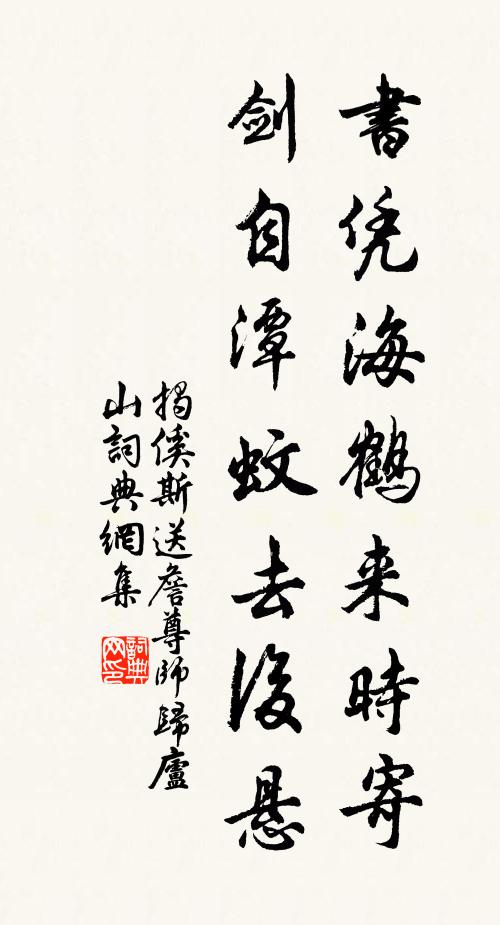 書凭海鶴来時寄
剑自潭蚊去後悬
揭傒斯送詹尊師歸廬
山詞典網集
詞典
网印